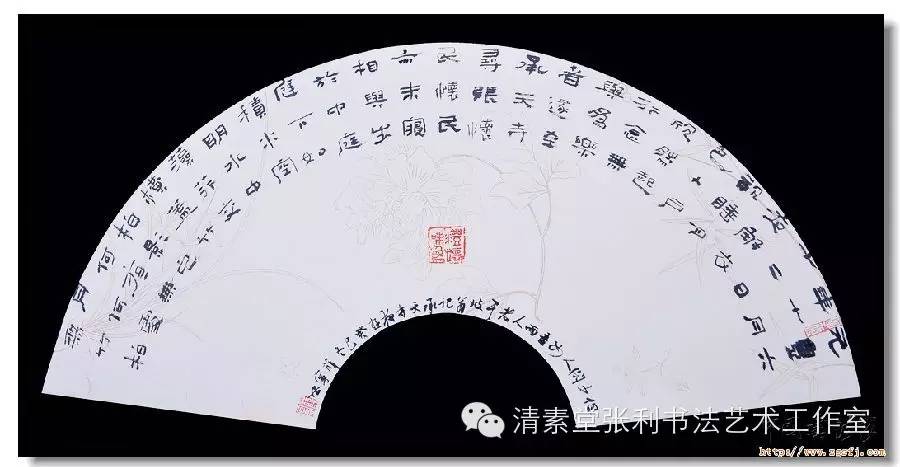 元豐六
年十月
十二日
夜解衣
欲睡月
色入戶
欣然起
行念無
與為樂
者遂至
承天寺
尋張懷
民懷民
亦未寢
相與步
於中庭
庭下如
積水空
明水中
藻荇交
橫蓋竹
柏影也
何夜無
月何處
無竹柏
但少閑人如吾兩人者耳 坡翁記承天寺夜遊 癸巳
清素堂张利书法艺术工作室